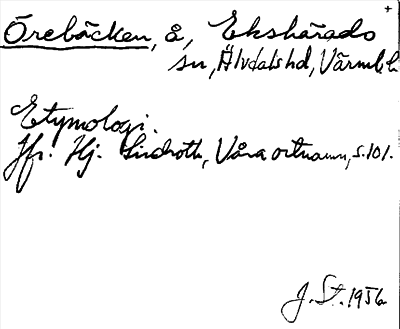 Örebäcken, å, Ekshärads
sn, Älvdals hd, Värml. l.
Etymologi.
Jfr. Hj. Lindroth, Våra ortnamn, s. 101.
J. St. 1956